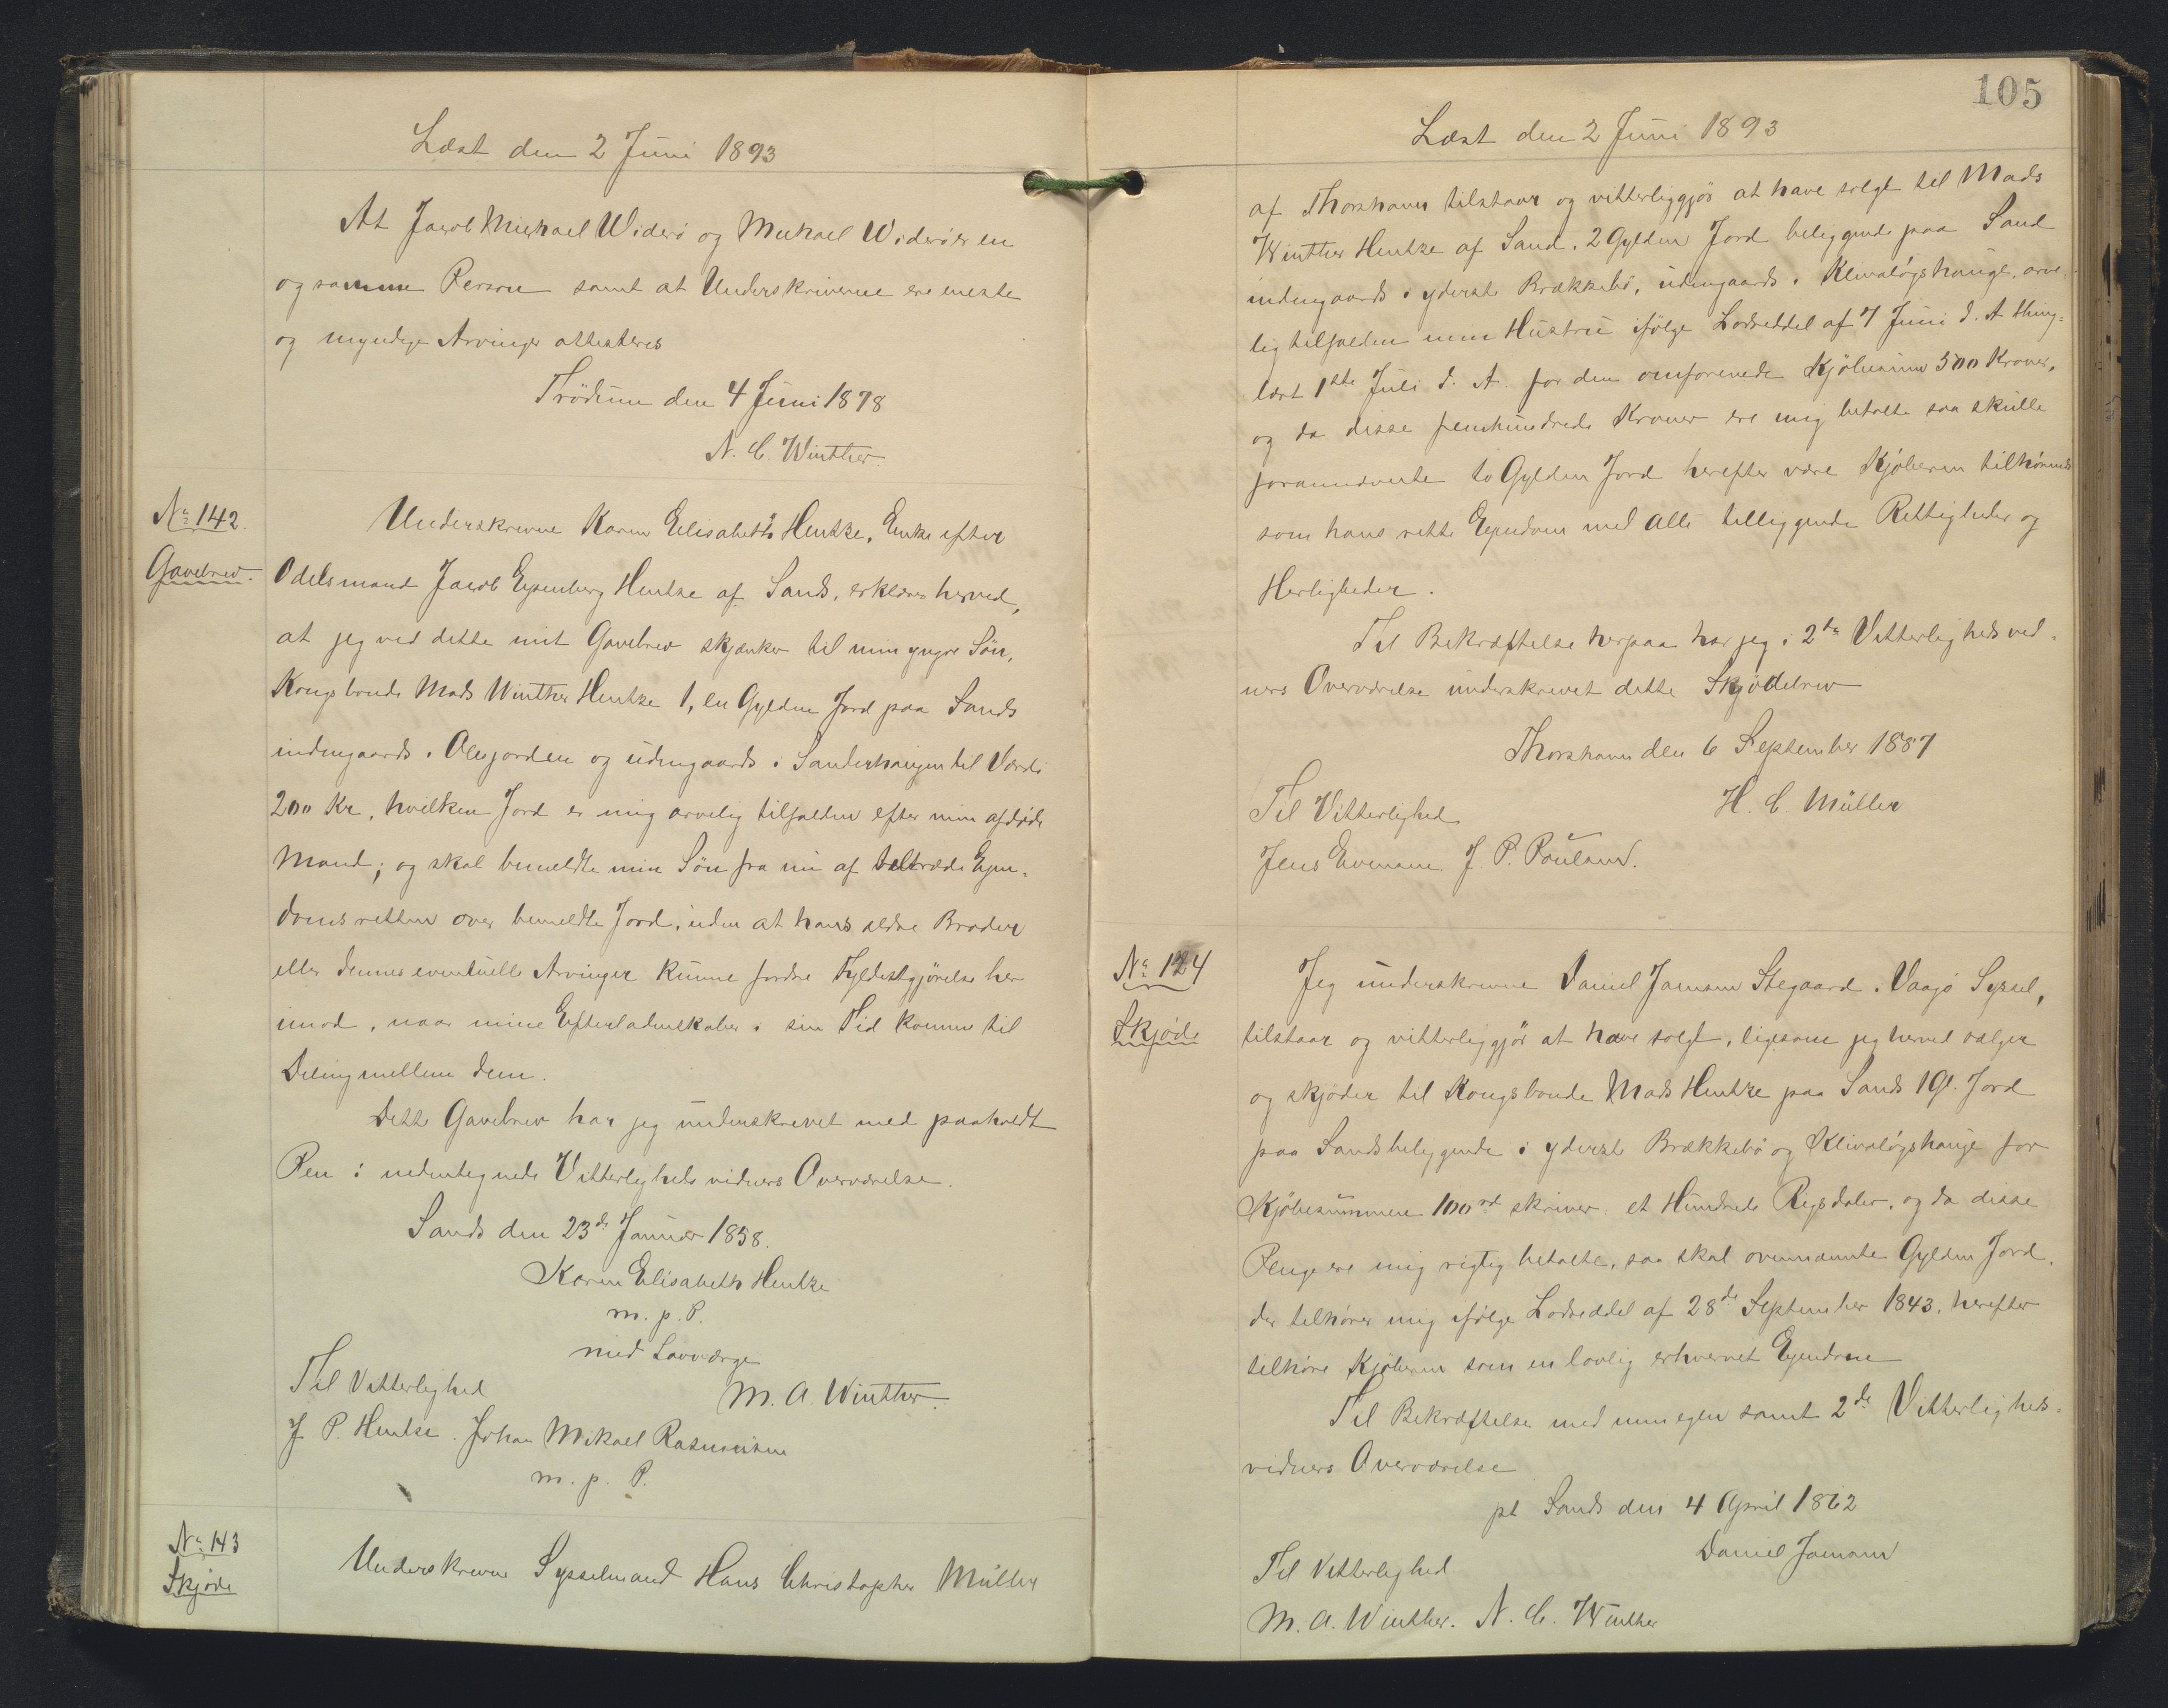 Læst den 2 Juni 1893
At Jacob Michael Widerö og Michael Widerö er en
og samme Person samt at Underskriverne ere eneste
og myndige Arvinger attesteres
Trödum den 4 Juni 1878
N. C. Winther.
No 142.
Gavebrev.
Underskrevne Karen Elisabeth Hentze, Enke efter
Odelsmand Jacob Eysenberg Hentze af Sands, erklærer herved,
at jeg ved dette mit Gavebrev skjænker til min yngre Sön,
Kongsbonde Mads Winther Hentze 1, en Gylden Jord paa Sands
indengaards i Olesjorden og udengaards i Sanderhaugen til Værdi
200 Kr, hvilken Jord er mig arvelig tilfalden efter min afdöde
Mand; og skal bemeldte min Sön fra nu af tiltræde Ejen-
domsretten over bemeldte Jord, uden at hans ældre Broder
eller dennes eventuelle Arvinger kunne fordre Fyldestgjörelse her
imod, naar mine Efterladenskaber i sin Tid komme til
Deling mellem dem.
Dette Gavebrev har jeg underskrevet med paaholdt
Pen i nedentegnede Vitterligheds vidners Overværelse.
Sands den 23de Januar 1858.
Karen Elisabeth Hentze
m. p. P.
med Lavværge
Til Vitterlighed
M. A. Winther.
J. P. Hentze. Johan Mikael Rasmusen
m. p. P.
No 143
Skjøde
Underskrevne Sysselmand Hans Christopher Müller
105
Læst den 2 Juni 1893
af Thorshavn tilstaar og vitterliggjör at have solgt til Mads
Winther Hentze af Sand, 2 Gylden Jord beliggende paa Sand
indengaards i yderste Brækkebö, udengaards i Klivalögshauge, arve-
lig tilfalden min Hustru ifölge Lodseddel af 7 Juni d. A thing-
læst 1ste Juli d. A. for den omforenede Kjöbesum 500 Kroner,
og da disse femhundrede Kroner ere mig betalte saa skulle
forannævnte to Gylden Jord herefter være Kjöberen tilhörende
som hans rette Ejendom med alle tilliggende Rettigheder og
Herligheder.
Til Bekræftelse herpaa har jeg i 2de Vitterligheds vid-
ners Overværelse underskrevet dette Skjödebrev
Thorshavn den 6 September 1887
Til Vitterlighed
H. C. Müller
Jens Evensen J. P. Poulsen.
No 124
Skjøde
Jeg underskrevne Daniel Jansen Stegaard i Vaagö Syssel,
tilstaar og vitterliggjör at have solgt, ligesom jeg herved sælger
og skjøder til Kongsbonde Mads Hentze paa Sands 1 Gl. Jord
paa Sands beliggende i yderste Brækkebö og Klivalögshauge for
Kjöbesummen 100 rd skriver: et Hundrede Rigsdaler, og da disse
Penge ere mig rigtig betalte, saa skal ovennævnte Gylden Jord,
der tilhörer mig ifölge Lodseddel af 28de September 1843, herefter
tilhöre Kjöberen som en lovlig erhvervet Ejendom
Til Bekræftelse med min egen samt 2de Vitterligheds-
vidners Overværelse
pt Sands den 4 April 1862
Til Vitterlighed
Daniel Jansen
M. A. Winther. N. C. Winther